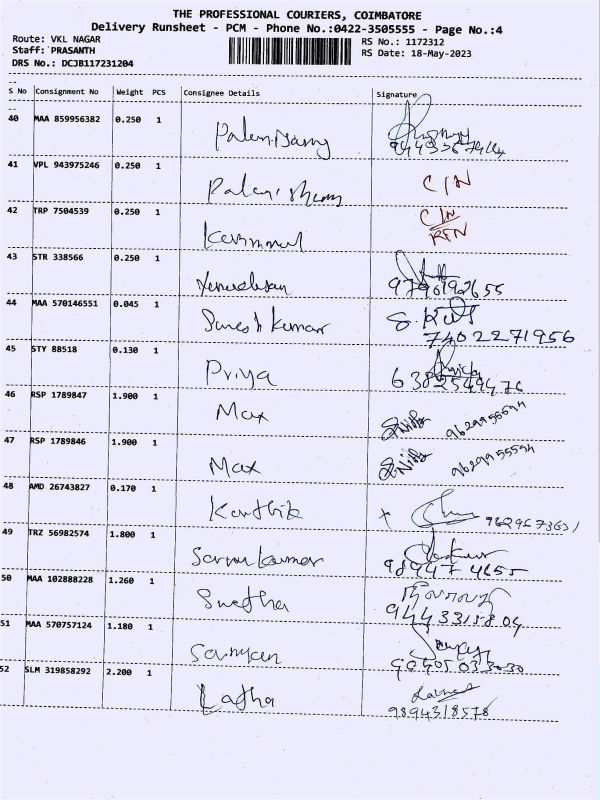 THE PROFESSIONAL COURIERS, COIMBATORE
Delivery Runsheet - PCM - Phone No.:0422-3505555 - Page No.:4
Route: VKL NAGAR RS No.: 1172312
Staff: PRASANTH RS Date: 18-May-2023
DRS No.: DCJB117231204
S No Consignment No Weight PCS Consignee Details Signature
40 MAA 859956382 0.250 1
41 VPL 943975246 0.250 1 C/N
42 TRP 7504539 0.250 1 C/N
RTN
43 STR 338566 0.250 1
44 MAA 570146551 0.045 1 Suresh Kumar
7402271956
45 STY 88518 0.130 1 Priya
6382549476
46 RSP 1789847 1.900 1 Max 9629955594
47 RSP 1789846 1.900 1 Max 9629955594
48 AMD 26743827 0.170 1 Karthik
49 TRZ 56982574 1.800 1 Saravankumar
50 MAA 102888228 1.260 1 Swetha
51 MAA 570757124 1.180 1
52 SLM 319858292 2.200 1 Latha
9894318578